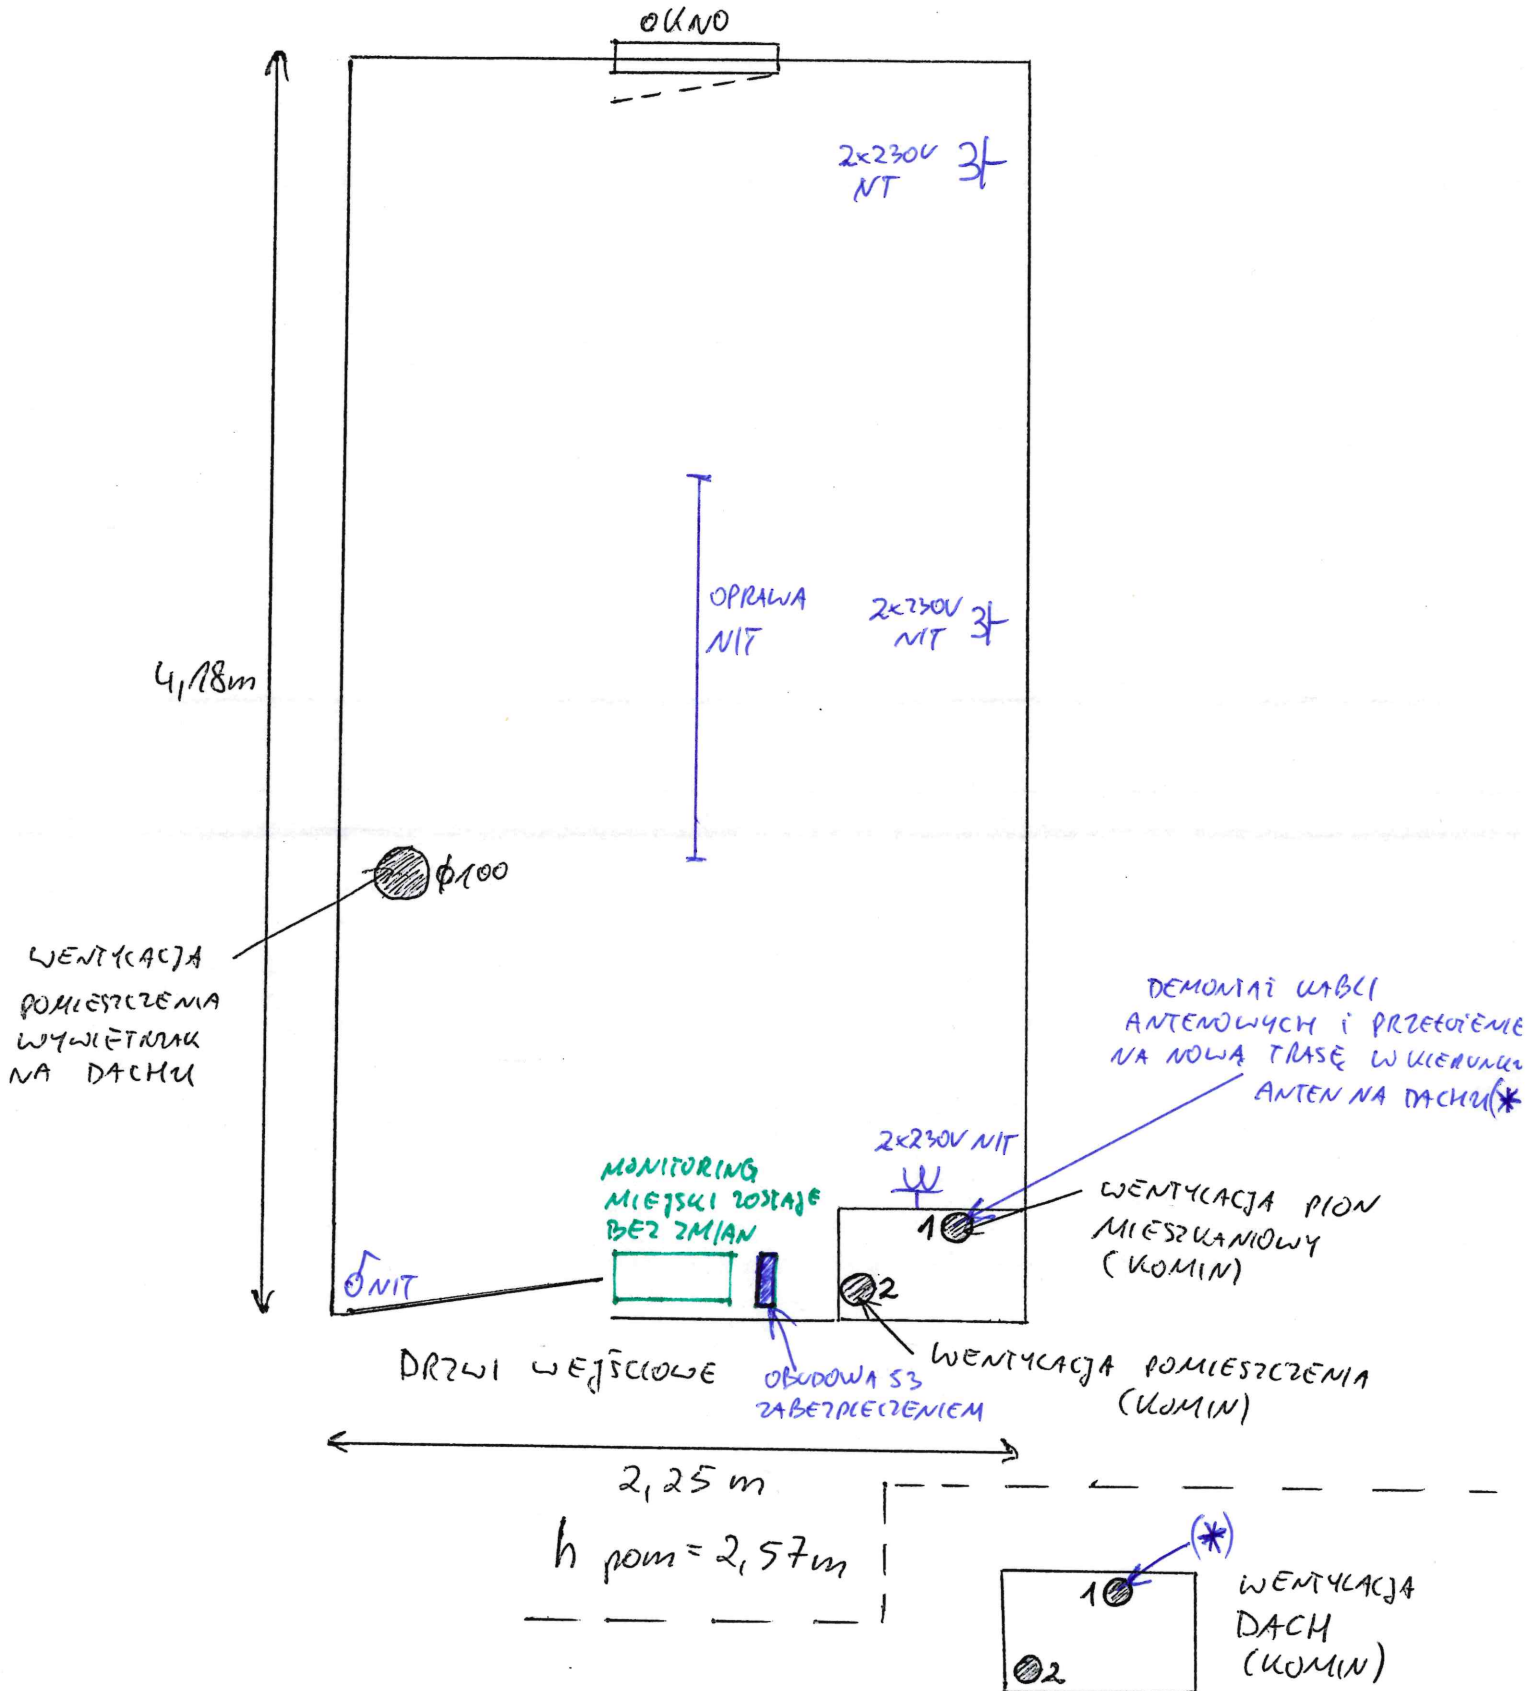 OKNO
2x230V
NT
OPRAWA
NIT
2x230V
NIT
4,18m
ϕ100
WENTYLACJA
POMIESZCZENIA
WYWIETRZAK
NA DACHU
DEMONTAŻ KABLI
ANTENOWYCH i PRZEŁOŻENIE
NA NOWĄ TRASĘ W KIERUNKU
ANTEN NA DACHU(*
2x230V NIT
MONITORING
MIEJSKI ZOSTAJE
BEZ ZMIAN
1
WENTYLACJA PION
MIESZKANIOWY
(KOMIN)
2
NIT
DRZWI WEJŚCIOWE
OBUDOWA S3
ZABEZPIECZENIEM
WENTYLACJA POMIESZCZENIA
(KOMIN)
2,25 m
h pom = 2,57m
(*)
1
2
WENTYLACJA
DACH
(KOMIN)